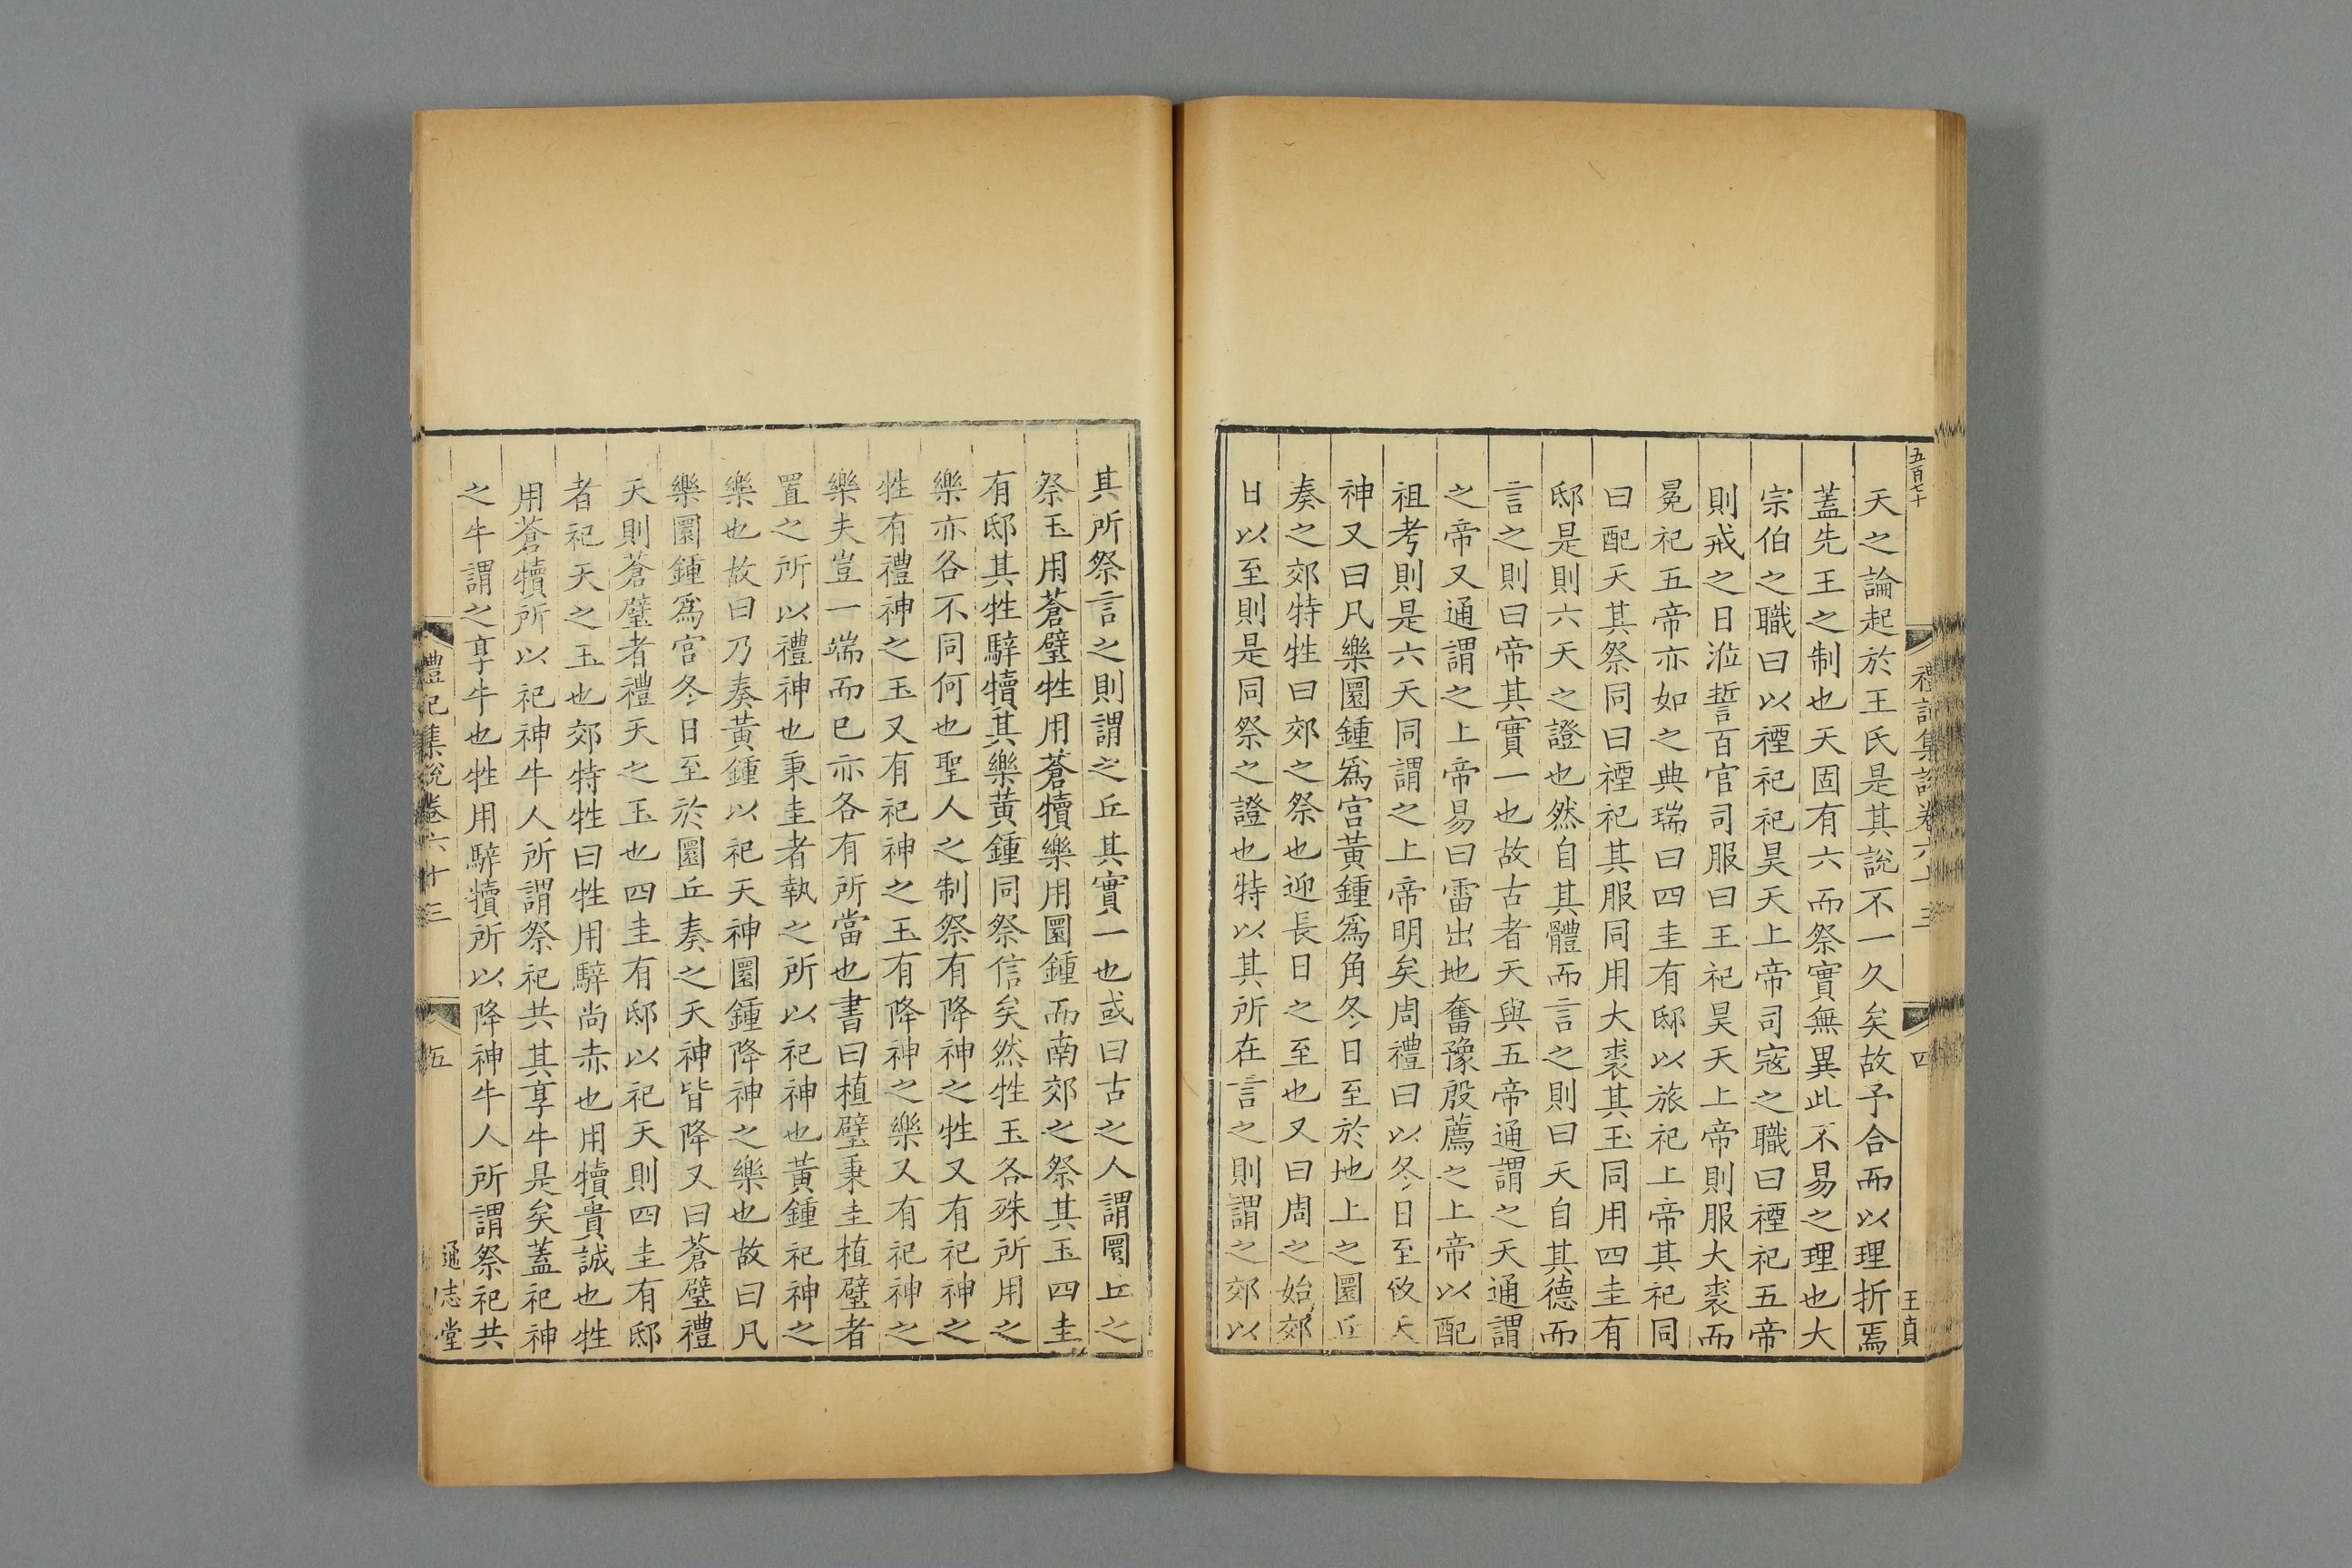 五百七十
禮記集說卷六十三
四
王貞
天之論起於王氏是其說不一久矣故予合而以理折焉
蓋先王之制也天固有六而祭實無異此不易之理也大
宗伯之職曰以禋祀祀昊天上帝司寇之職曰禋祀五帝
則戒之日涖誓百官司服曰王祀昊天上帝則服大裘而
冕祀五帝亦如之典瑞曰四圭有邸以旅祀上帝其祀同
曰配天其祭同曰禋祀其服同用大裘其玉同用四圭有
邸是則六天之證也然自其體而言之則曰天自其德而
言之則曰帝其實一也故古者天與五帝通謂之天通謂
之帝又通謂之上帝易曰雷出地奮豫殷薦之上帝以配
祖考則是六天同謂之上帝明矣周禮曰以冬日至攽天
神又曰凡樂圜鍾爲宮黃鍾爲角冬日至於地上之圜丘
奏之郊特牲曰郊之祭也迎長日之至也又曰周之始郊
日以至則是同祭之證也特以其所在言之則謂之郊以
其所祭言之則謂之丘其實一也或曰古之人謂圜丘之
祭玉用蒼璧牲用蒼犢樂用圜鍾而南郊之祭其玉四圭
有邸其牲騂犢其樂黃鍾同祭信矣然牲玉各殊所用之
樂亦各不同何也聖人之制祭有降神之牲又有祀神之
牲有禮神之玉又有祀神之玉有降神之樂又有祀神之
樂夫豈一端而已亦各有所當也書曰植璧秉圭植璧者
置之所以禮神也秉圭者執之所以祀神也黃鍾祀神之
樂也故曰乃奏黃鍾以祀天神圜鍾降神之樂也故曰凡
樂圜鍾爲宮冬日至於圜丘奏之天神皆降又曰蒼璧禮
天則蒼璧者禮天之玉也四圭有邸以祀天則四圭有邸
者祀天之玉也郊特牲曰牲用騂尚赤也用犢貴誠也牲
用蒼犢所以祀神牛人所謂祭祀共其享牛是矣蓋祀神
之牛謂之享牛也牲用騂犢所以降神牛人所謂祭祀共
禮記集說卷六十三
五
通志堂